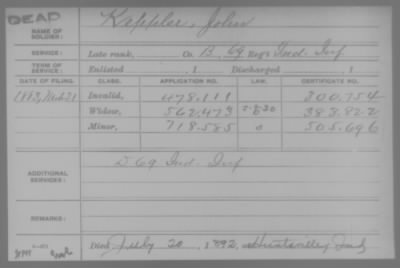 DEAD
NAME OF SOLDIER: Keppler, John
SERVICE: Late rank, Co. B, 69 Reg't Ind. Inf
TERM OF SERVICE: Enlisted , 1 Discharged , 1
DATE OF FILING. CLASS. APPLICATION NO. LAW. CERTIFICATE NO.
1883, Mch 21 Invalid, 478,111 300,754
Widow, 562,473 388,822
Minor, 718,585 " 505,696
ADDITIONAL SERVICES: D 69 Ind. Inf
REMARKS:
Died July 20, 1892, Huntsville, Ind